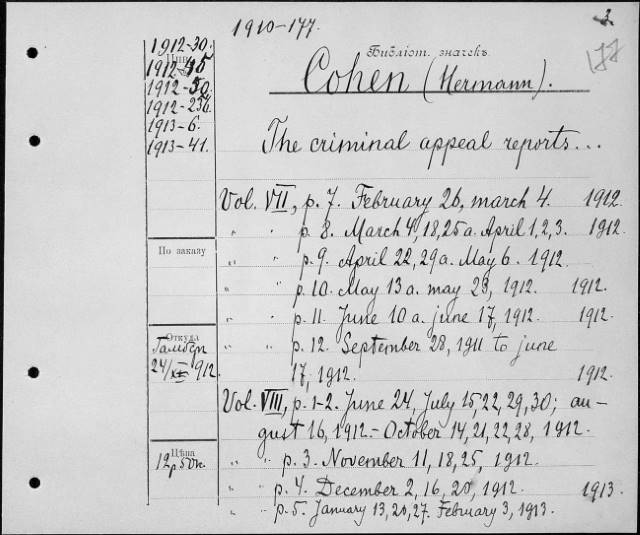 1910-177.
3.
177
Библіот. значекъ
Cohen (Hermann).
1912-30.
1912-45
1912-50.
1912-236.
1913-6.
1913-41.
The criminal appeal reports...
Vol. VII, p. 7. February 26, march 4. 1912.
" " p. 8. March 4, 18, 25 a. April 1, 2, 3. 1912.
По заказу
" " p. 9. April 22, 29 a. May 6. 1912.
" " p. 10. May 13 a. may 23, 1912. 1912.
" " p. 11. June 10 a. june 17, 1912. 1912.
Откуда
Гамберг
24/XI 912.
" " p. 12. September 28, 1911 to june
17, 1912. 1912.
Vol. VIII, p. 1-2. June 24, July 15, 22, 29, 30; au-
gust 16, 1912.- October 14, 21, 22, 28, 1912.
Цѣна
12 р. 50 к.
" " p. 3. November 11, 18, 25, 1912.
" " p. 4. December 2, 16, 20, 1912. 1913.
" " p. 5. January 13, 20, 27. February 3, 1913.